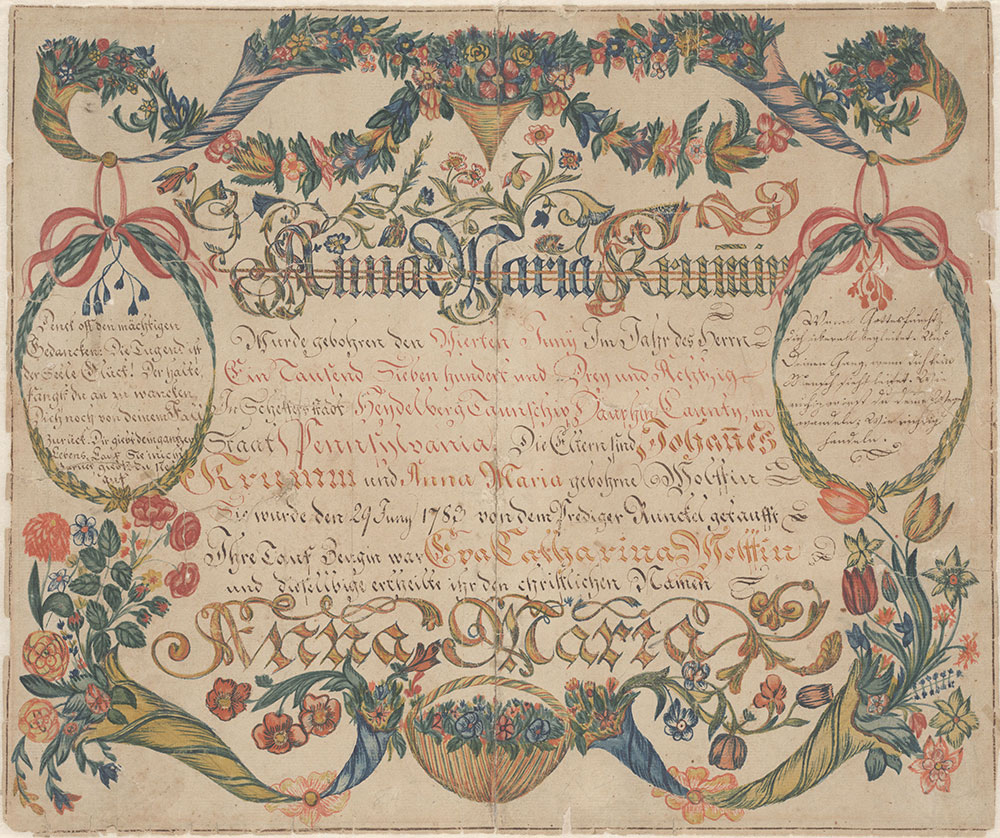 Anna Maria Krumin
Wurde gebohren den Vierten Juny Im Jahr des Herrn
Ein Tausend Sieben hundert und Drey und Achtzig
In Scheffers stadt Heydelberg Taunschip Dauphin Caunty, im
Staat Pennsylvania. Die Eltern sind Johannes
Krumm und Anna Maria gebohrne Wolffin
Sie wurde den 29 Juny 1783 von dem Prediger Runckel getaufft
Ihre Tauf Zeugin war Eva Catharina Wolffin
und dieselbige ertheilte ihr den christlichen Namen
Anna Maria
Denck oft den mächtigen
Gedancken: Die Tugend ist
der Seele Glück! Der halte
fängst du an zu wancken,
Dich noch von deinem Fall
zurück. Dir giebt den gantzen
Lebens Lauf Sie
giebst du
auf
Wenn Gottesfurcht
dich überall begleitet. Und
Deinen Gang, wenn dich kein
Mensch sieht leitet. So
wirst du
wandeln; Und richtig
handeln.